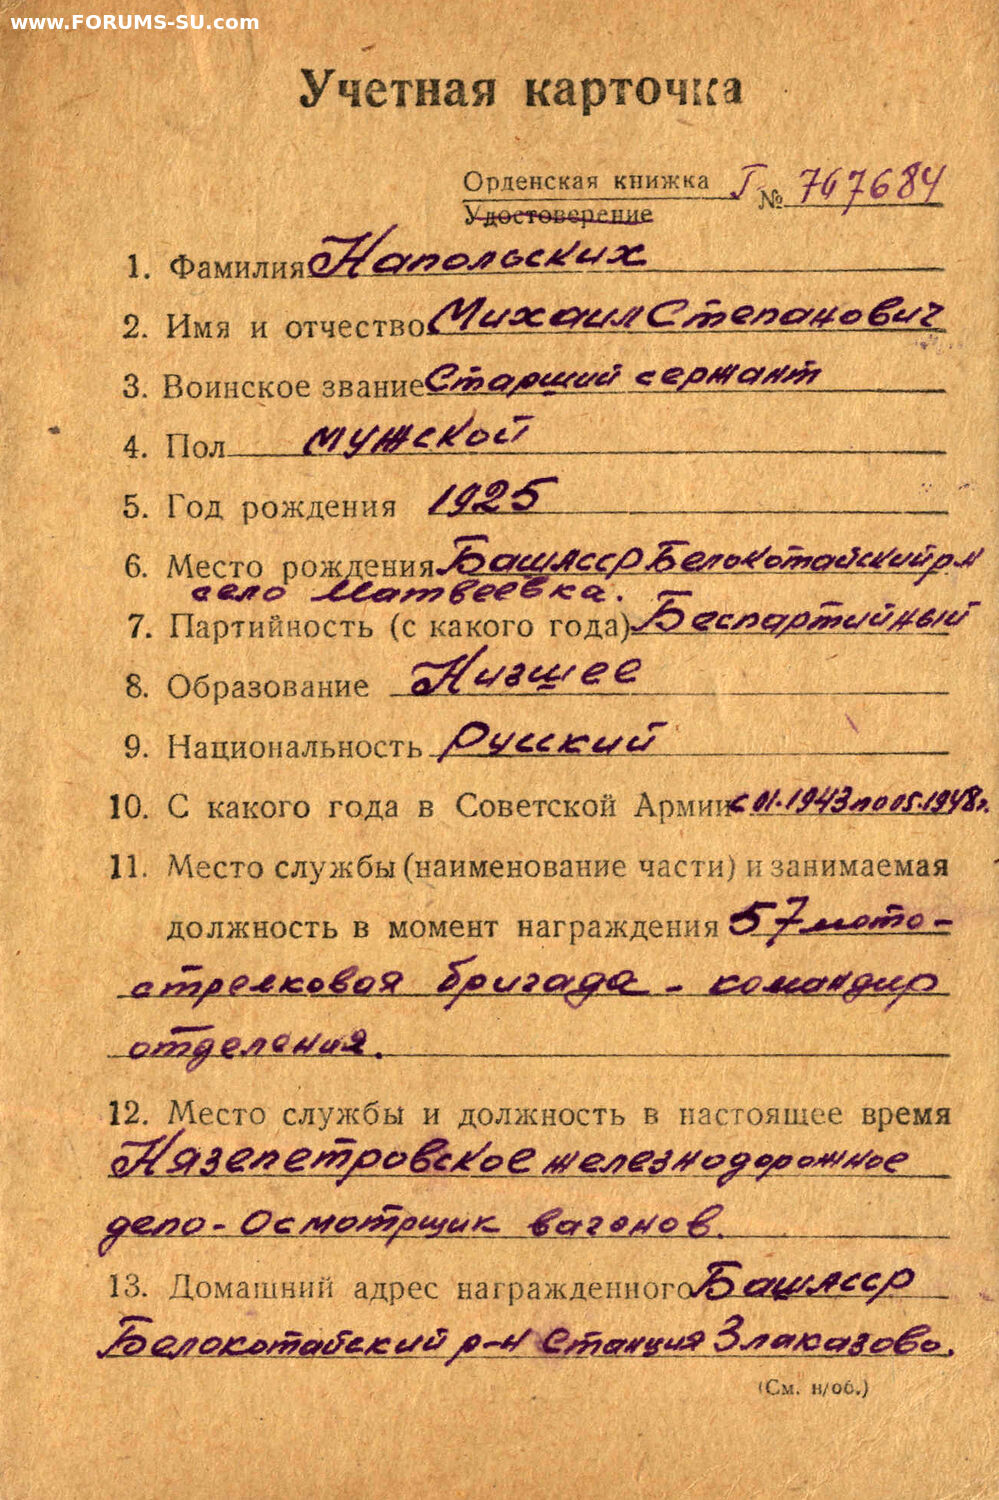 www.FORUMS-SU.com
Учетная карточка
Орденская книжка Г № 767684
Удостоверение
1. Фамилия Напольских
2. Имя и отчество Михаил Степанович
3. Воинское звание Старший сержант
4. Пол мужской
5. Год рождения 1925
6. Место рождения БашАССР Белокотайский р.н
село Матвеевка.
7. Партийность (с какого года) Беспартийный
8. Образование Низшее
9. Национальность Русский
10. С какого года в Советской Армии с 01.1943 по 05.1948г.
11. Место службы (наименование части) и занимаемая
должность в момент награждения 57 мото-
стрелковая бригада - командир
отделения.
12. Место службы и должность в настоящее время
Нязепетровское железнодорожное
депо - Осмотрщик вагонов.
13. Домашний адрес награжденного БашАССР
Белокотайский р-н Станция Злаказово.
(См. н/об.)